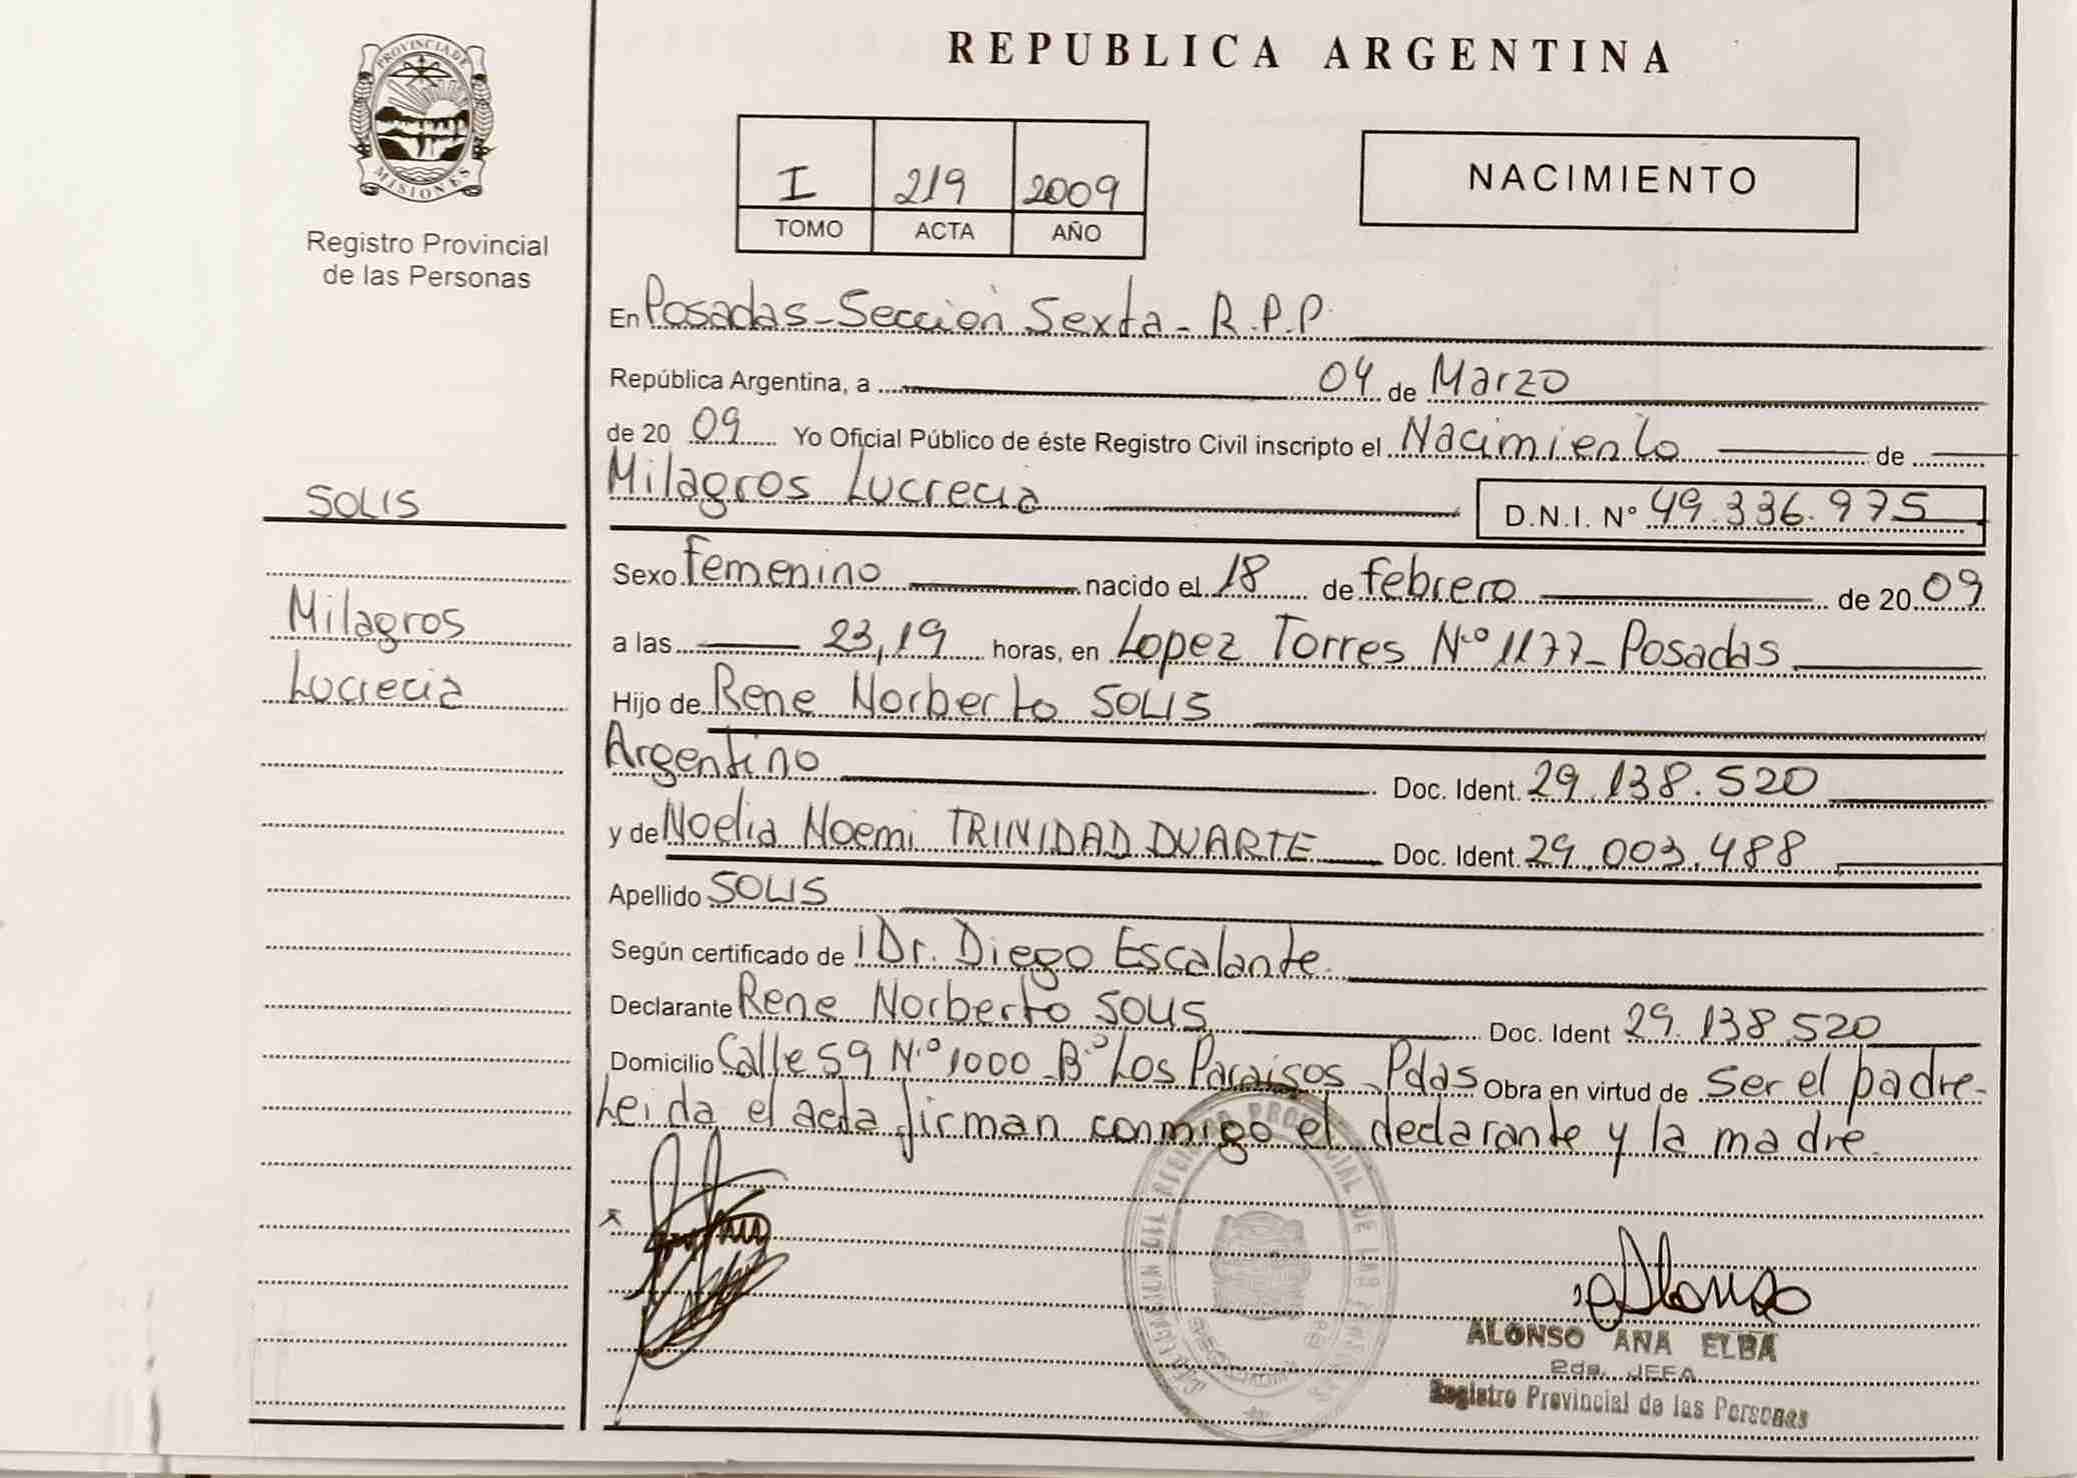 PROVINCIA DE
MISIONES
Registro Provincial
de las Personas
SOLIS
Milagros
Lucrecia
REPUBLICA ARGENTINA
I 219 2009
TOMO ACTA AÑO
NACIMIENTO
En Posadas-Sección Sexta-R.P.P.
República Argentina, a 04 de Marzo
de 20 09 Yo Oficial Público de éste Registro Civil inscripto el Nacimiento de
Milagros Lucrecia D.N.I. Nº 49.336.975
Sexo Femenino nacido el 18 de febrero de 20 09
a las 23,19 horas, en Lopez Torres Nº 1177-Posadas
Hijo de Rene Norberto SOLIS
Argentino Doc. Ident. 29.138.520
y de Noelia Noemi TRINIDAD DUARTE Doc. Ident. 29.003.488
Apellido SOLIS
Según certificado de l Dr. Diego Escalante.
Declarante Rene Norberto SOLIS Doc. Ident 29.138.520
Domicilio Calle 59 Nº 1000-Bº Los Paraisos-Pdas Obra en virtud de ser el padre-
Leida el acta firman conmigo el declarante y la madre.
Alonso
ALONSO ANA ELBA
2da. JEFA
Registro Provincial de las Personas